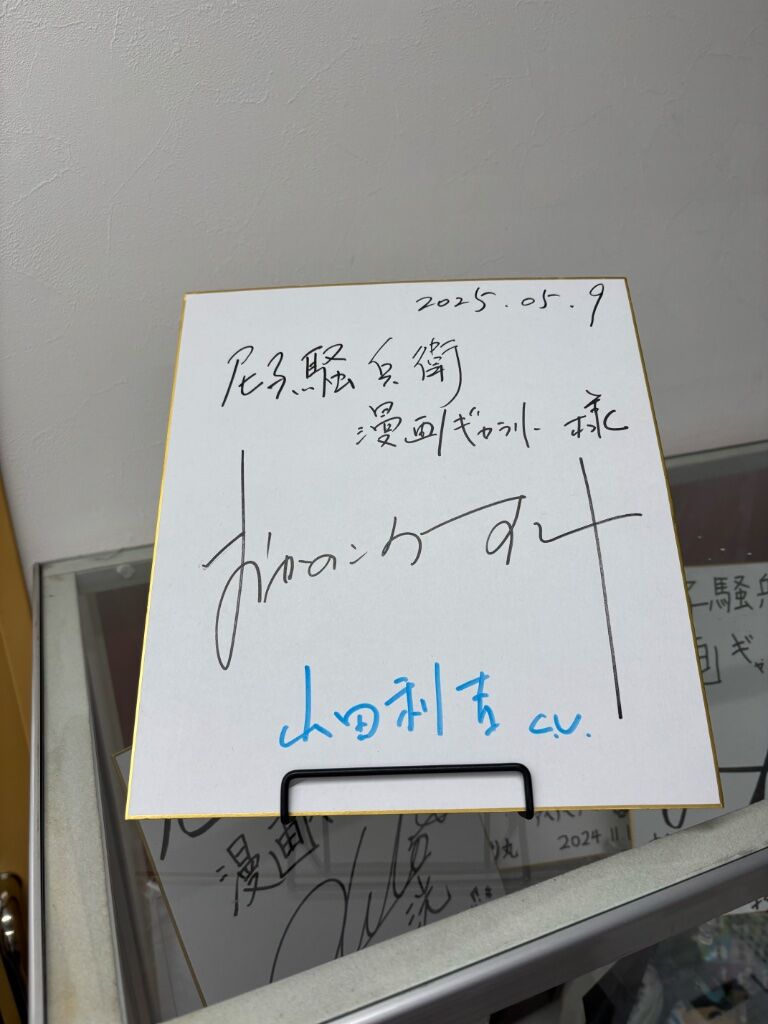 2025.05.9
尼子騒兵衛
漫画ギャラリー 様
おかのこうすけ
山田利吉 C.V.
子騒兵
画ギャ
漫画
り丸
2024 11.1